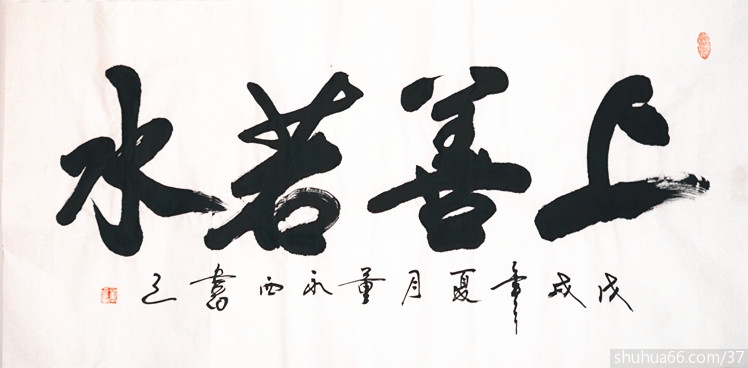 上善若水
戊戌年夏月董永西書之
shuhua66.com/37